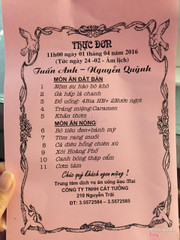 THỰC ĐƠN
11h00 ngày 01 tháng 04 năm 2016
(Tức ngày 24-02 - Âm lịch)
Tuấn Anh - Nguyễn Quỳnh
MÓN ĂN ĐẶT BÀN
1 Nộm su hào bò khô
2 Gà hấp lá chanh
3 Đồ uống: 4Bia HN+ 2Nước ngọt
4 Tráng miệng: Caramen
5 Khăn thơm
MÓN ĂN NÓNG
6 Bò tiêu đen+bánh mỳ
7 Tôm rang muối
8 Cá diêu hồng chiên xù
9 Xôi Hoàng Phố
10 Canh bóng thập cẩm
11 Cơm tám
Chúc quý khách ngon miệng !
Trung tâm dịch vụ ăn uống
CÔNG TY TNHH CÁT TƯỜNG
219 Nguyễn Trãi
ĐT: 3.5572584 - 3.5572585